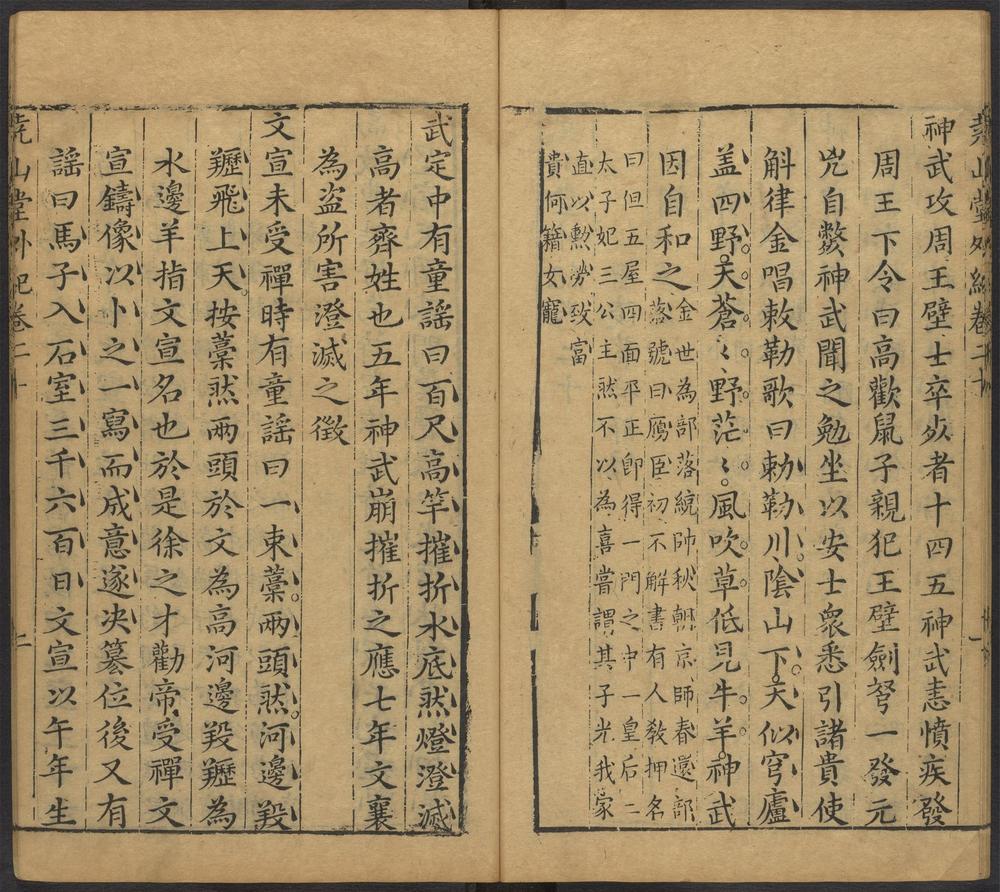 堯山堂外紀卷二十
神武攻周王壁士卒死者十四五神武恚憤疾發
周王下令曰高歡鼠子親犯王壁劍弩一發元
兇自斃神武聞之勉坐以安士衆悉引諸貴使
斛律金唱敕勒歌曰勅勒川陰山下天似穹廬
盖四野天蒼〻野茫〻風吹草低見牛羊神武
因自和之
金世為部落統帥秋朝京師春還部
落號曰鴈臣初不解書有人教押名
曰但五屋四面平正即得一門之中一皇后二
太子妃三公主然不以為喜嘗謂其子光我家
直以勲勞致富
貴何籍女寵
武定中有童謡曰百尺高竿摧折水底㸐燈澄滅
高者齊姓也五年神武崩摧折之應七年文襄
為盗所害澄滅之徵
文宣未受禪時有童謡曰一束藁兩頭㸐河邊羖
䍽飛上天按藁㸐兩頭於文為高河邊羖䍽為
水邊羊指文宣名也於是徐之才勸帝受禪文
宣鑄像以卜之一寫而成意遂决簒位後又有
謡曰馬子入石室三千六百日文宣以午年生
堯山堂外紀卷二十
二